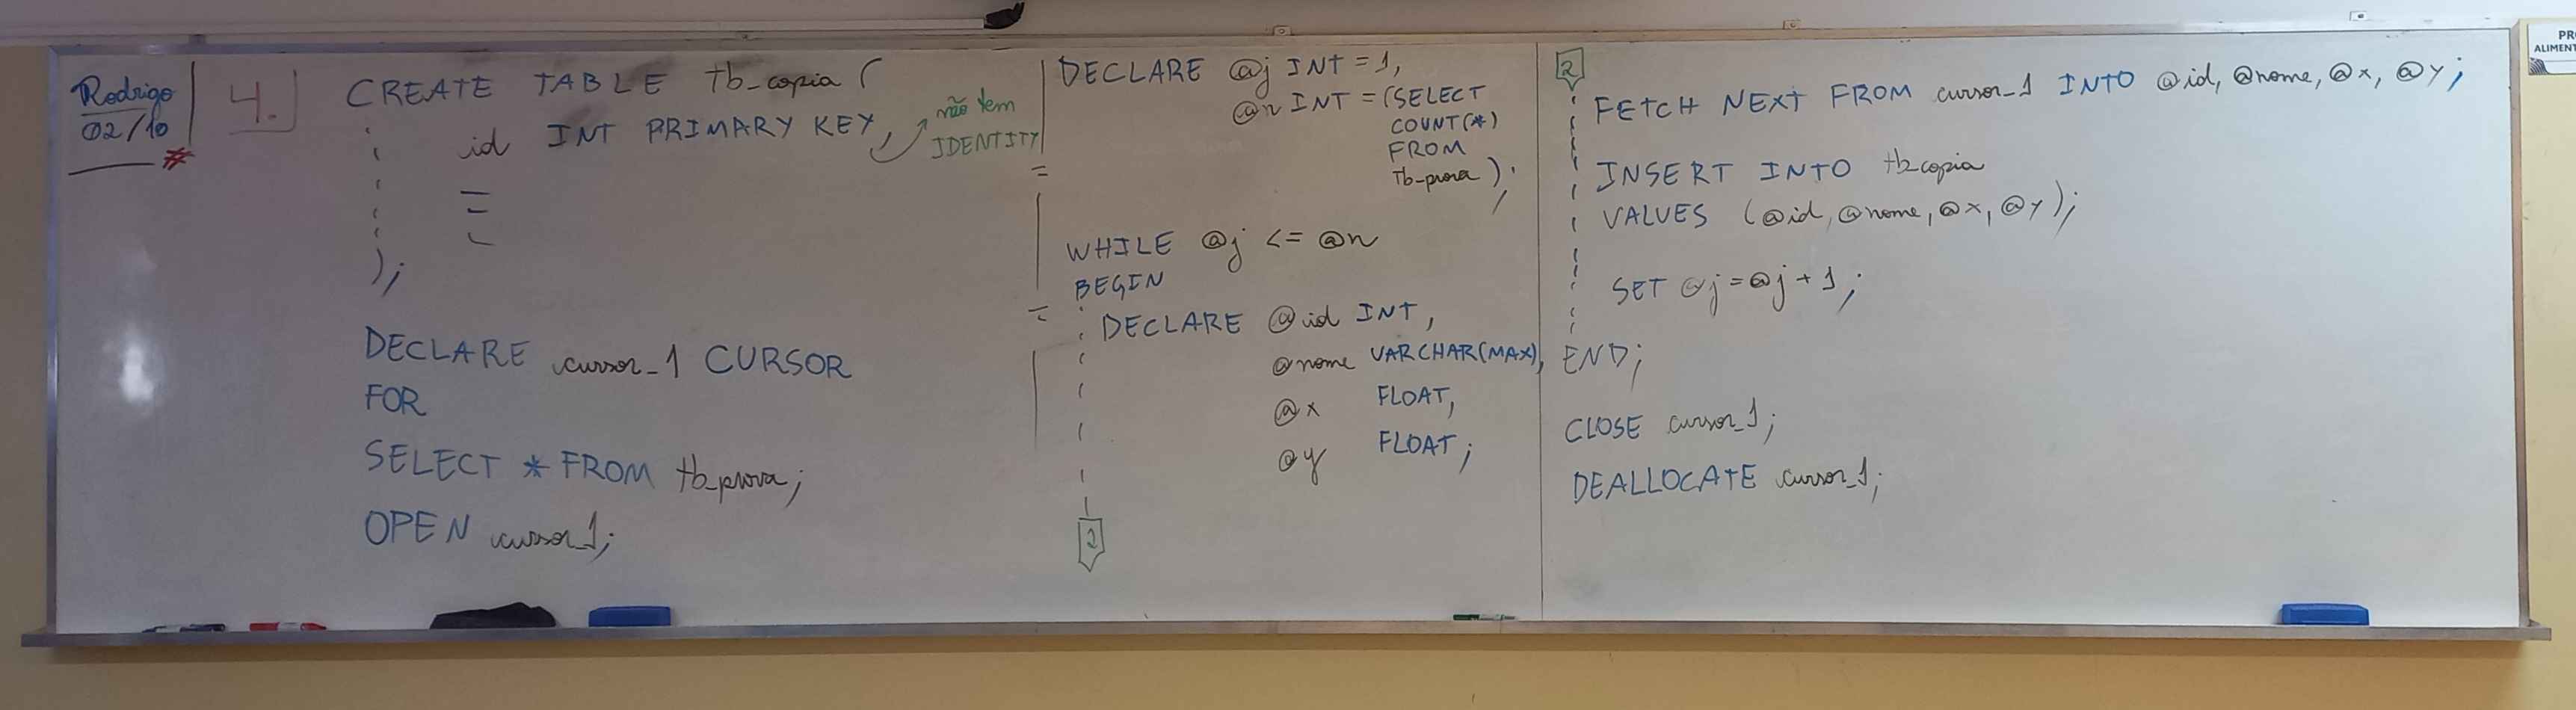 Rodrigo
02/10
#
4.
CREATE TABLE tb_copia (
id INT PRIMARY KEY,
não tem
IDENTITY
);
DECLARE cursor_1 CURSOR
FOR
SELECT * FROM tb_prova;
OPEN cursor_1;
DECLARE @j INT = 1,
@n INT = (SELECT
COUNT(*)
FROM
tb_prova);
WHILE @j <= @n
BEGIN
DECLARE @id INT,
@nome VARCHAR(MAX),
@x FLOAT,
@y FLOAT;
2
2
FETCH NEXT FROM cursor_1 INTO @id, @nome, @x, @y;
INSERT INTO tb_copia
VALUES (@id, @nome, @x, @y);
SET @j = @j + 1;
END;
CLOSE cursor_1;
DEALLOCATE cursor_1;
PR
ALIMENT